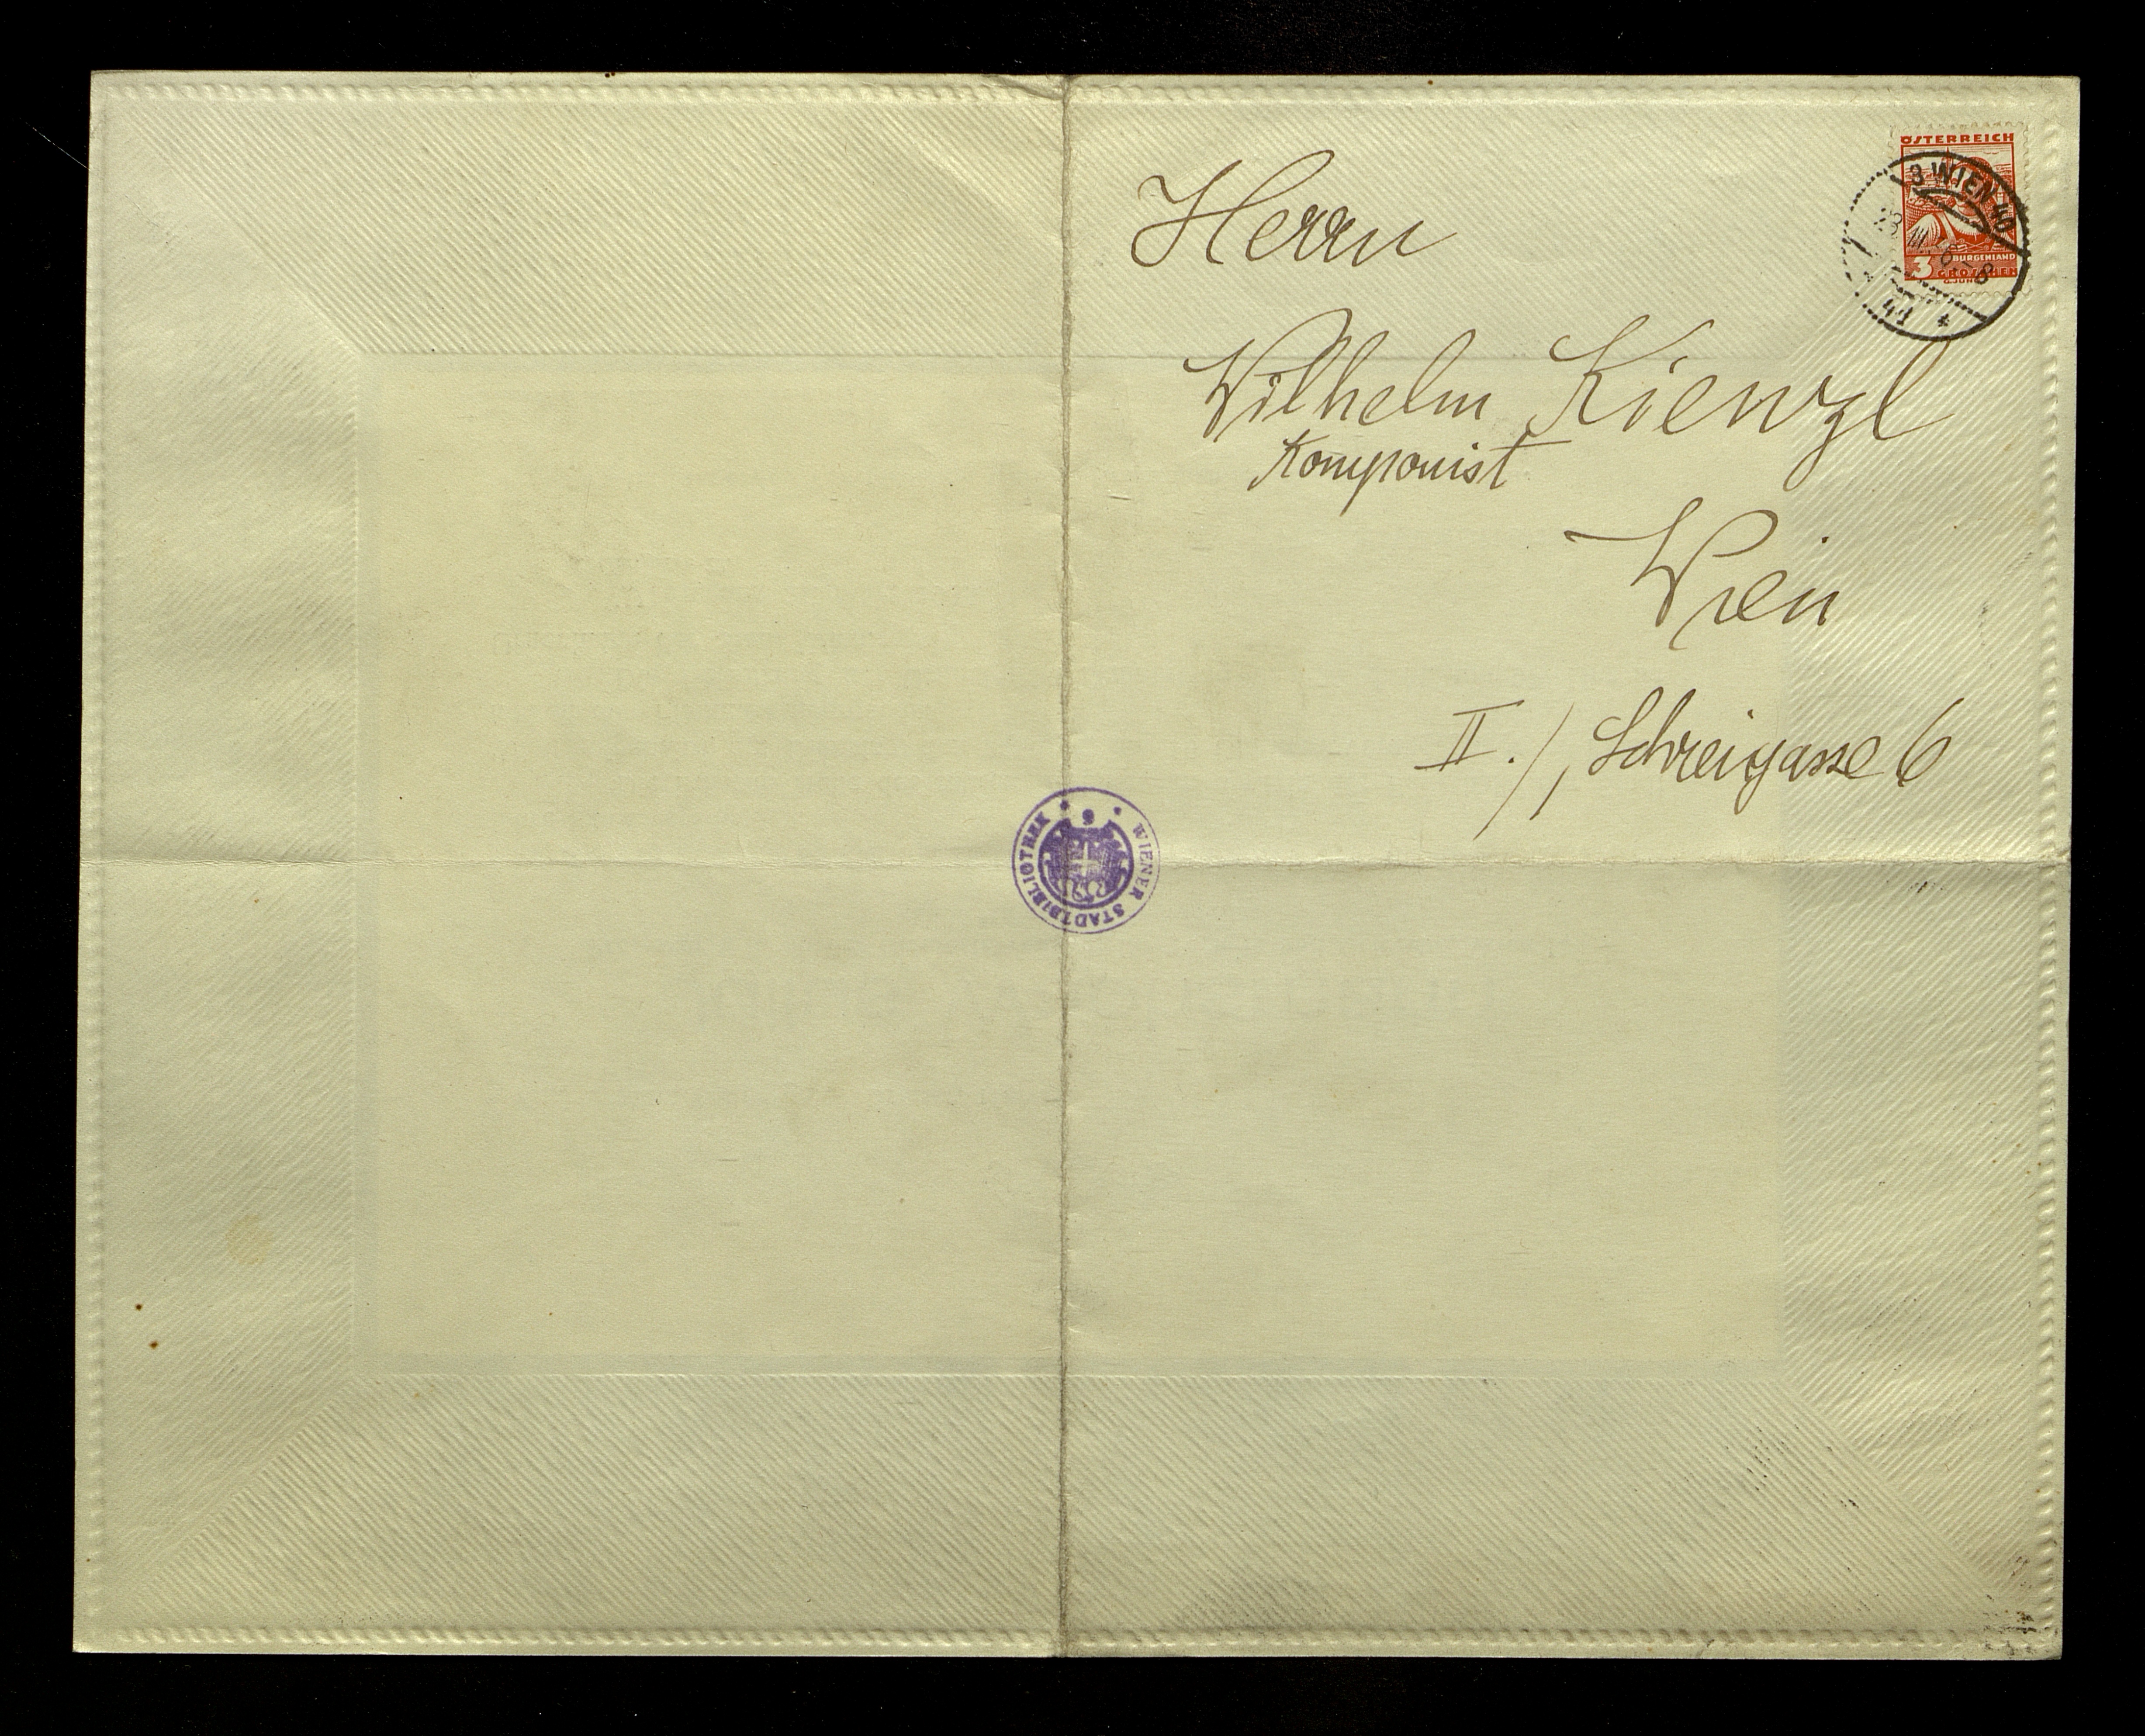 ÖSTERREICH
3 WIEN 40
BURGENLAND
3 GROSCHEN
Herrn
Wilhelm Kienzl
Komponist
Wien
II./, Schreigasse 6
WIENER STADTBIBLIOTHEK